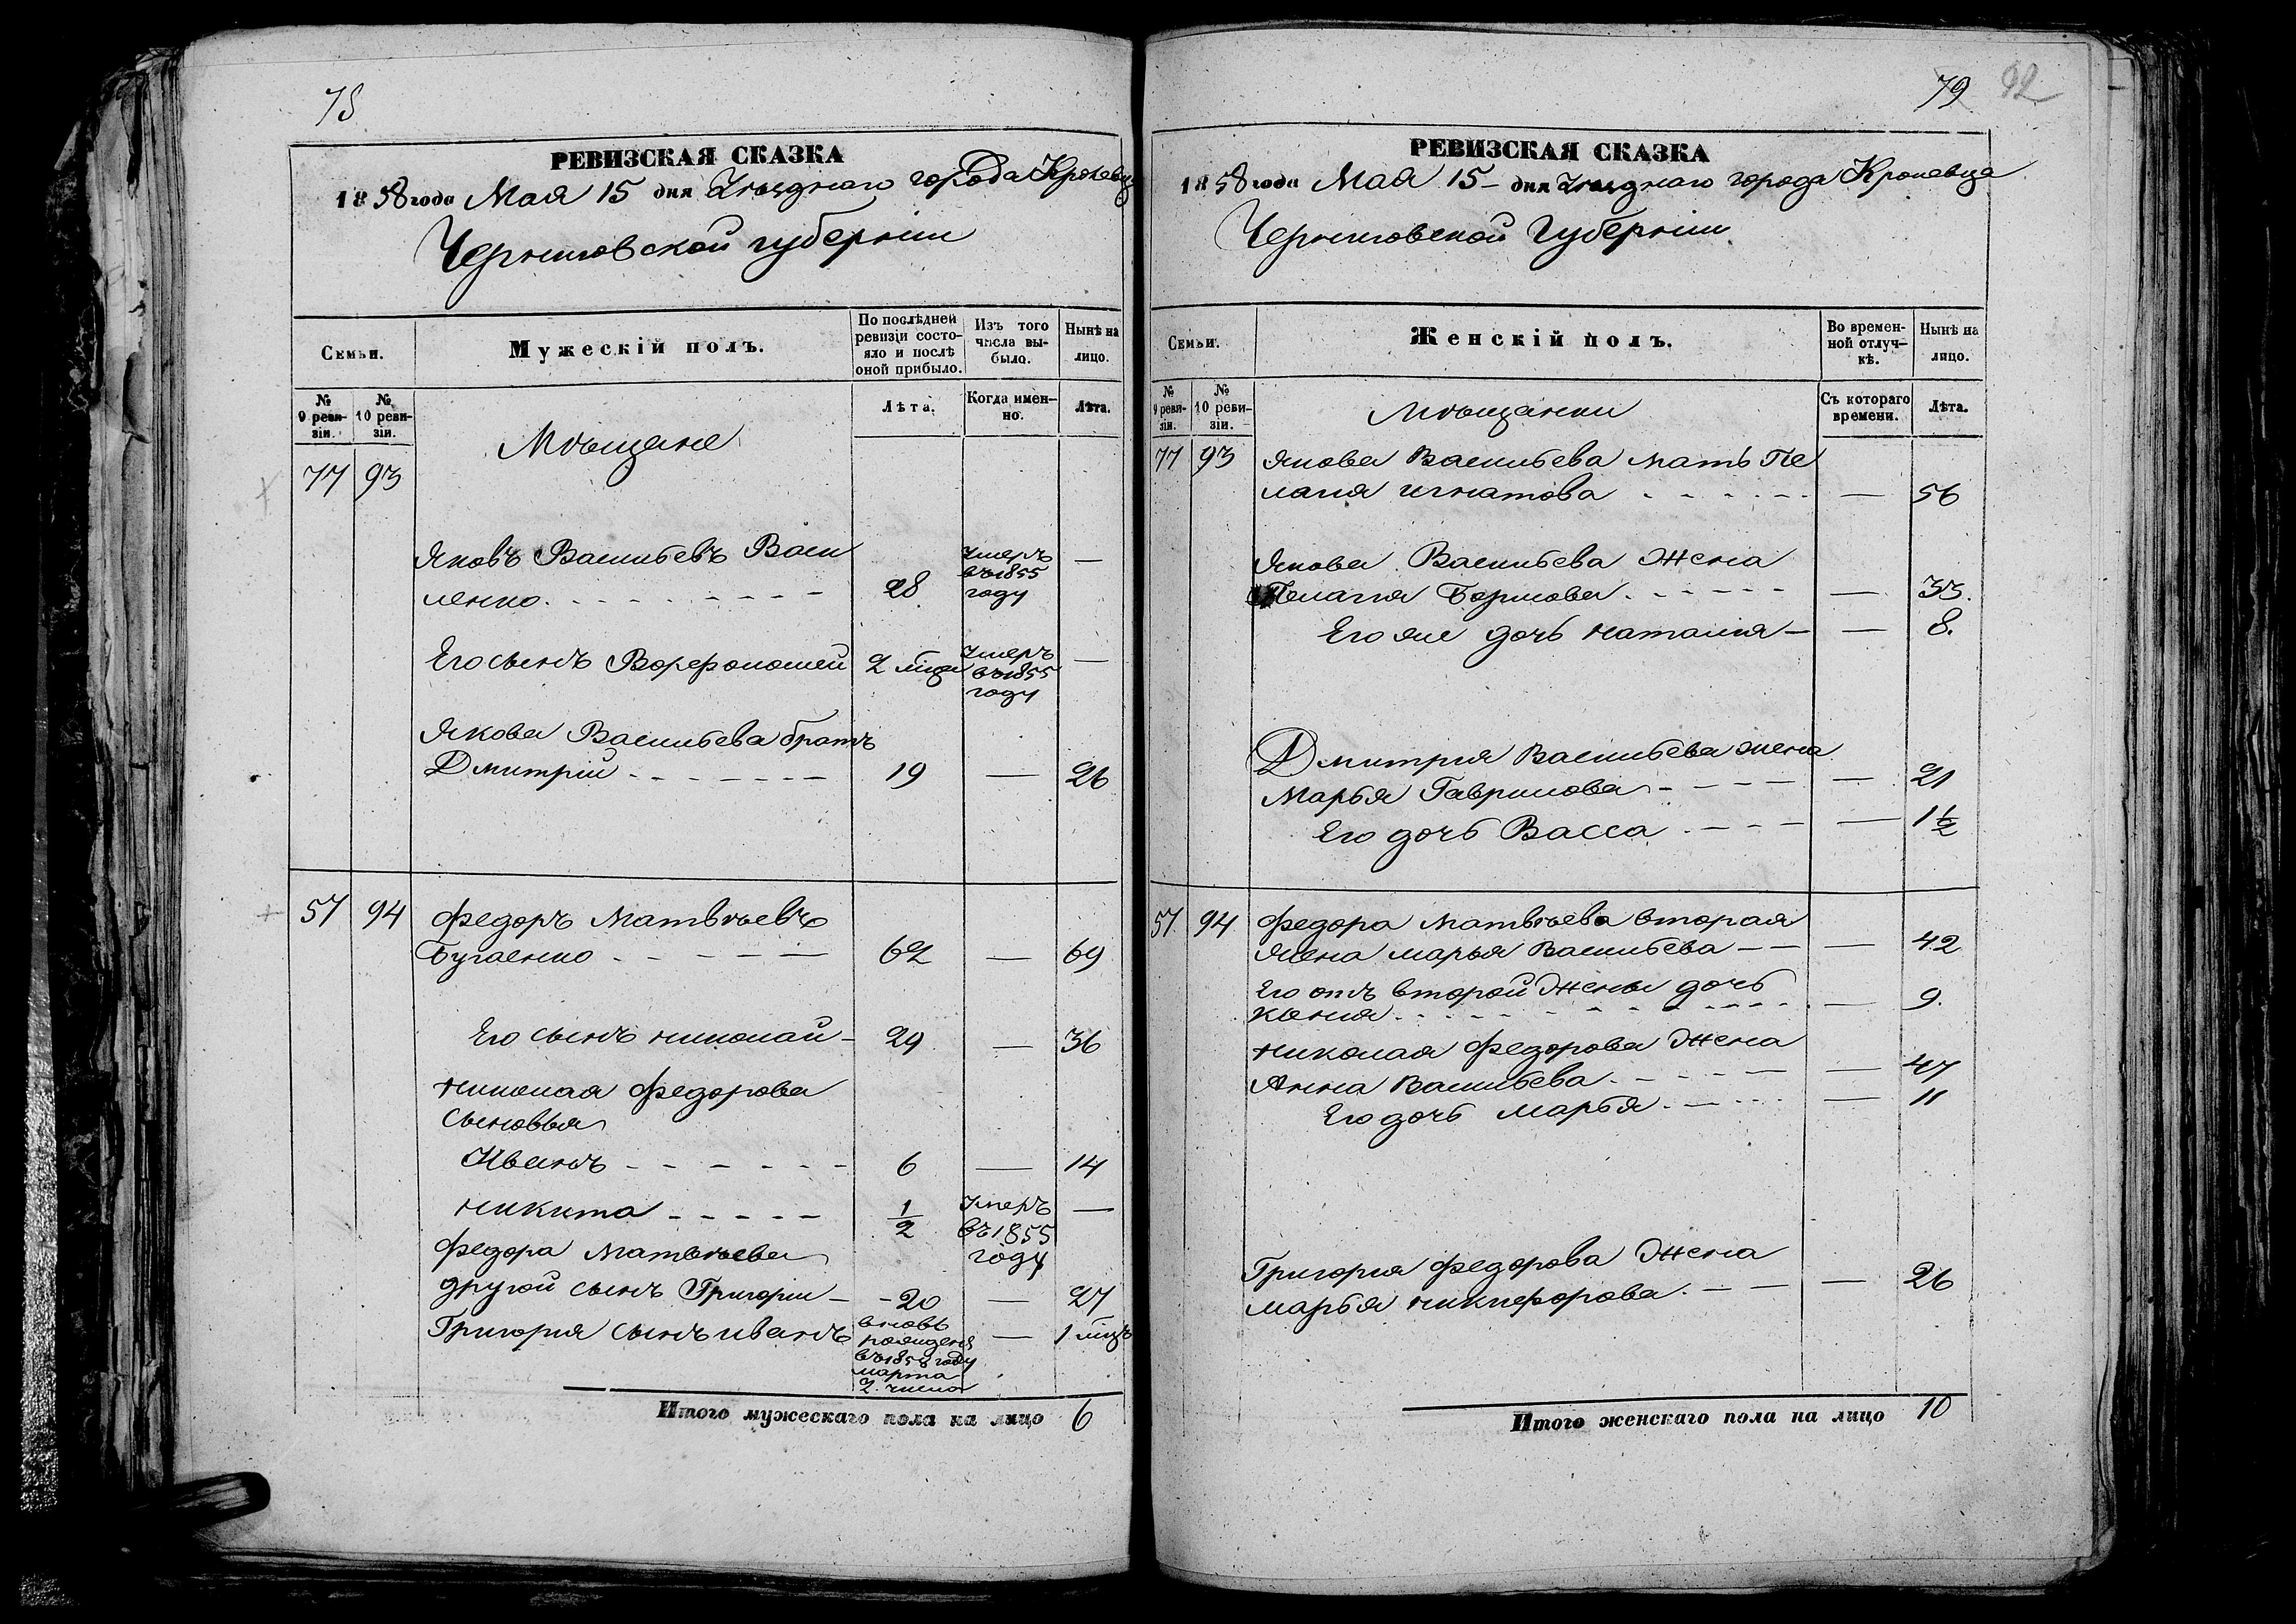 78
РЕВИЗСКАЯ СКАЗКА
1858 года Мая 15 дня Уѣзднаго города Кролевца
Черниговской губерніи
Семьи.
Мужескій полъ.
По послѣдней ревизіи состояло и послѣ оной прибыло.
Изъ того числа выбыло.
Нынѣ на лицо.
№ 9 ревизіи.
№ 10 ревизіи.
Лѣта.
Когда именно.
Лѣта.
Мѣщане
77 93
Яковъ Васильевъ Васи
ленко 28 умеръ въ 1855 году —
Его сынъ Ворфоломей 2 мѣсяц умеръ въ 1855 году —
Якова Васильева братъ
Дмитрій 19 — 26
57 94 Федоръ Матвѣевъ
Бугаенко 62 — 69
Его сынъ Николай 29 — 36
Николая Федорова
сыновья
Иванъ 6 — 14
Никита 1/2 умеръ въ 1855 году —
Федора Матвѣева
другой сынъ Григорій 20 — 27
Григорія сынъ Иванъ вновь рожденъ въ 1858 году марта 2 числа — 1 мѣцъ
Итого мужескаго пола на лицо 6
79 92
РЕВИЗСКАЯ СКАЗКА
1858 года Мая 15 дня Уѣзднаго города Кролевца
Черниговской Губерніи
Семьи.
Женскій полъ.
Во временной отлучкѣ.
Нынѣ на лицо.
№ 9 ревизіи.
№ 10 ревизіи.
Съ котораго времени.
Лѣта.
Мѣщанки
77 93 Якова Васильева мать Пе
лагія Игнатова — 56
Якова Васильева Жена
Пелагія Борисова — 33.
Его же дочь Наталія — 8.
Дмитрія Васильева жена
Марья Гаврилова — 21
Его дочь Васса — 1 1/2
57 94 Федора Матвѣева вторая
жена Марья Васильева — 42
Его отъ второй Жены дочь
Ксенія — 9.
Николая Федорова Жена
Анна Васильева — 47
Его дочь Марья — 11
Григорія Федорова Жена
Марья Никифорова — 26
Итого женскаго пола на лицо 10